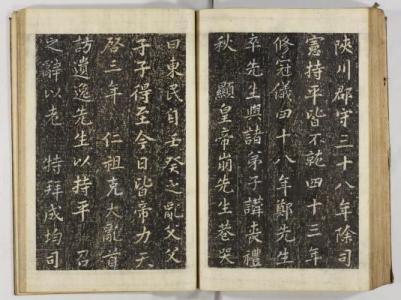 陜川郡守三十八年除司
憲持平皆不就四十三年
修冠儀四十八年鄭先生
卒先生與諸弟子講喪禮
秋 顯皇帝崩先生巷哭
曰東民自壬癸之亂父父
子子得至今日皆帝力天
啓三年 仁祖克大亂首
訪遺逸先生以持平 召
之辭以老 特拜成均司